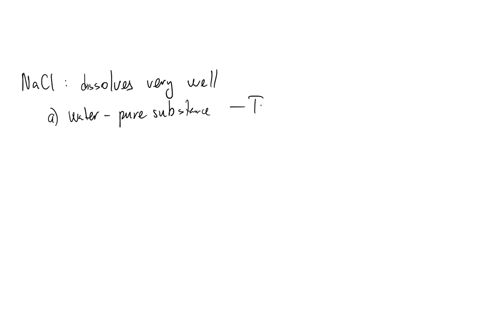 NaCl : dissolves very well
a) water - pure substance — T